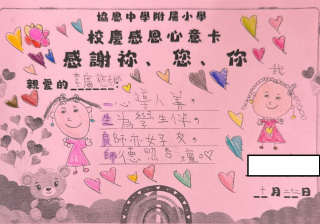 協恩中學附屬小學
校慶感恩心意卡
感謝祢、您、你
親愛的李
一心導人善，
生為學生伴。
良師亦好友，
師德照
我
十月二十二日